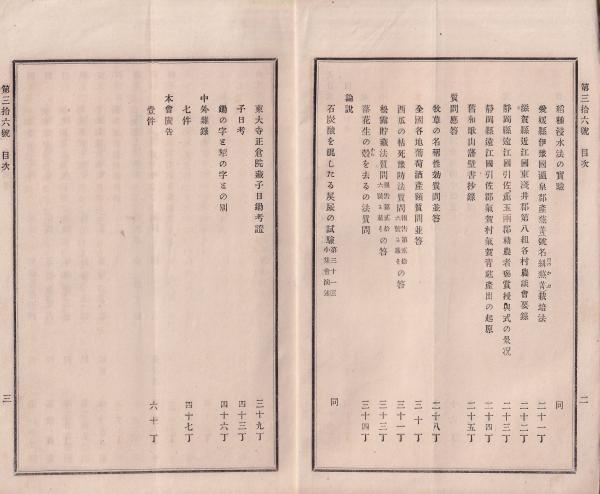 第三拾六號 目次 二
稻種浸水法の實驗 同
愛媛縣伊豫國溫泉郡產蕪菁號名緋蕪菁栽培法 二十一丁
滋賀縣近江國東淺井郡第八組各村農談會要錄 二十二丁
靜岡縣遠江國引佐麁玉兩郡精農者褒賞授與式の景况 二十三丁
靜岡縣遠江國引佐郡氣賀村氣賀靑莚產出の起原 二十四丁
舊和歌山藩壁書抄錄 二十五丁
質問應答
牧草の名稱性効質問並答 二十八丁
全國各地葡萄酒產額質問並答 三十丁
西瓜の枯死豫防法質問の答 三十一丁
法質問の答 三十三丁
落花生の殼を去るの法質問 三十四丁
論說
石炭酸を混したる屎尿の試驗 第三十一回小集會演述 同
東大寺正倉院藏子日鋤考證 三十九丁
子日考 四十三丁
鋤の字と犂の字との別 四十六丁
中外雜錄
七件 四十七丁
本會廣吿
壹件 六十丁
第三拾六號 目次 三